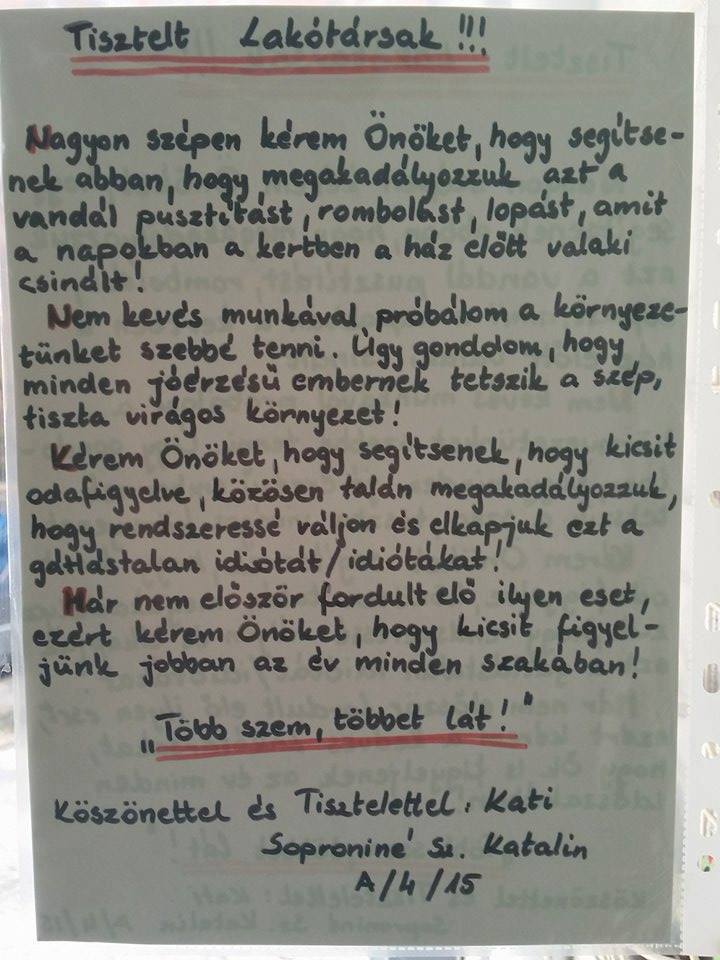 Tisztelt Lakótársak !!!
Nagyon szépen kérem Önöket, hogy segítse-
nek abban, hogy megakadályozzuk azt a
vandál pusztítást, rombolást, lopást, amit
a napokban a kertben a ház előtt valaki
csinált!
Nem kevés munkával próbálom a környeze-
tünket szebbé tenni. Úgy gondolom, hogy
minden jóérzésű embernek tetszik a szép,
tiszta virágos környezet!
Kérem Önöket, hogy segítsenek, hogy kicsit
odafigyelve, közösen talán megakadályozzuk,
hogy rendszeressé váljon és elkapjuk ezt a
gátlástalan idiótát/idiótákat!
Már nem először fordult elő ilyen eset,
ezért kérem Önöket, hogy kicsit figyel-
jünk jobban az év minden szakában!
„Több szem, többet lát!"
Köszönettel és Tisztelettel: Kati
Soproniné Sz. Katalin
A/4/15